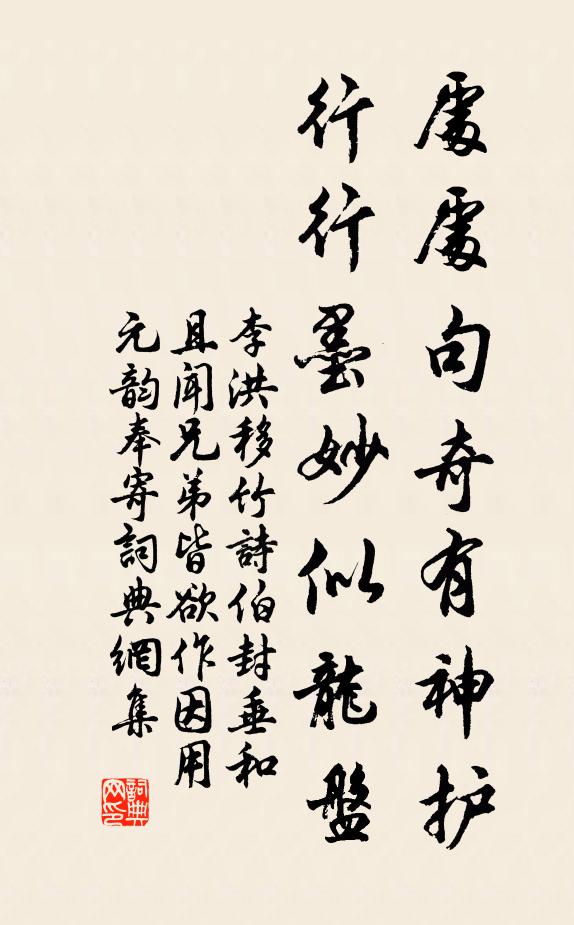 處處句奇有神护
行行墨妙似龍盤
李洪移竹詩伯封垂和
且闻兄弟皆欲作因用
元韵奉寄詞典網集
詞典網印